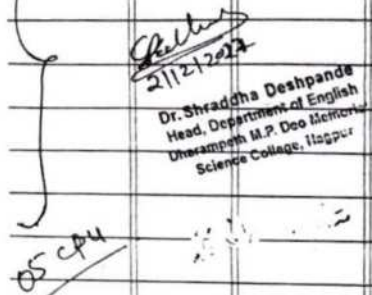 2/12/2022
Dr. Shraddha Deshpande
Head, Department of English
Dharampeth M.P. Deo Memorial
Science College, Nagpur
05 CPU